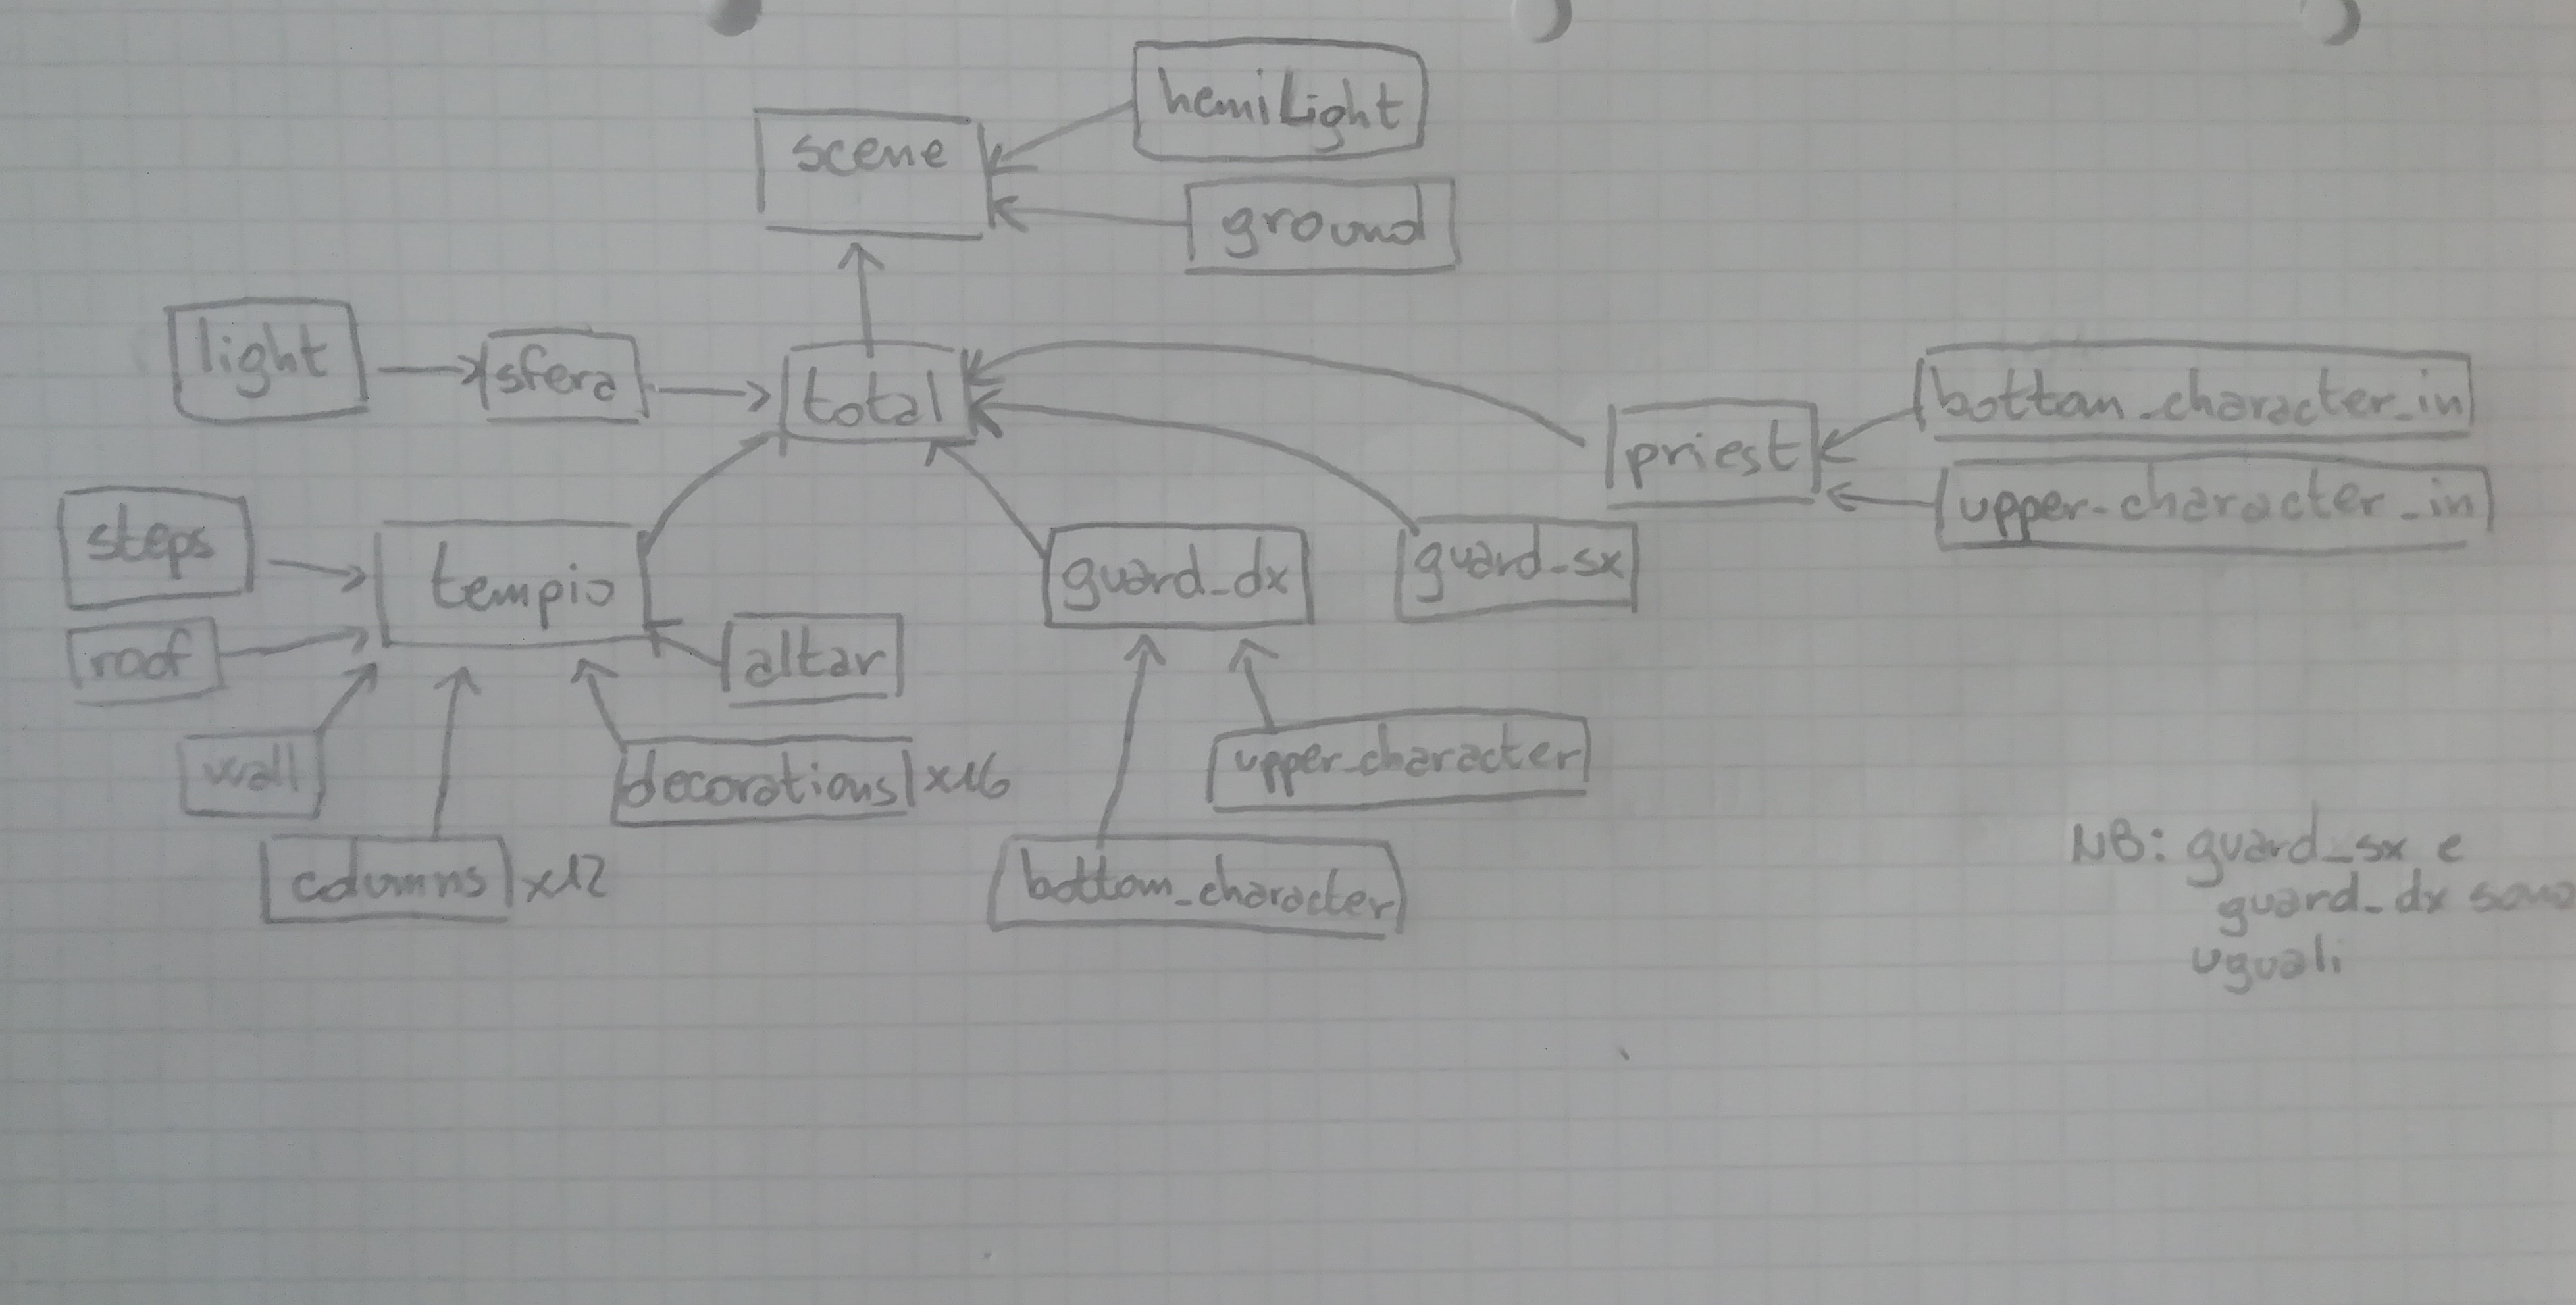 hemiLight
scene
ground
light
sfera
total
bottom_character_in
priest
upper-character_in
steps
tempio
guard_dx
guard_sx
roof
altar
wall
decorations x16
upper_character
columns x12
bottom_character
NB: guard_sx e
guard_dx sono
uguali